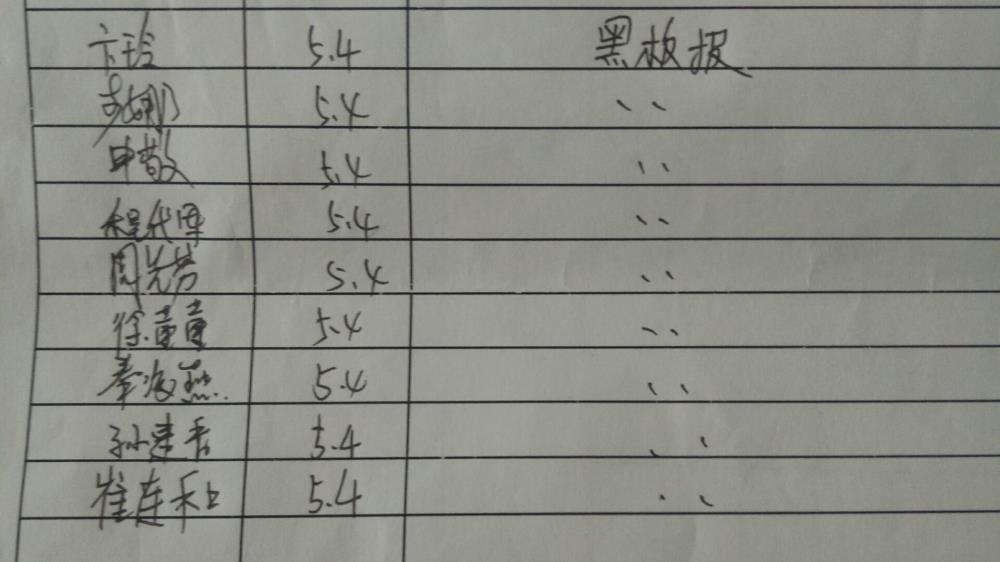 卞玲 5.4 黑板报
5.4 、、
申敬 5.4 、、
程代军 5.4 、、
周兰芳 5.4 、、
徐童童 5.4 、、
秦海燕 5.4 、、
孙建秀 5.4 、、
崔连和 5.4 、、